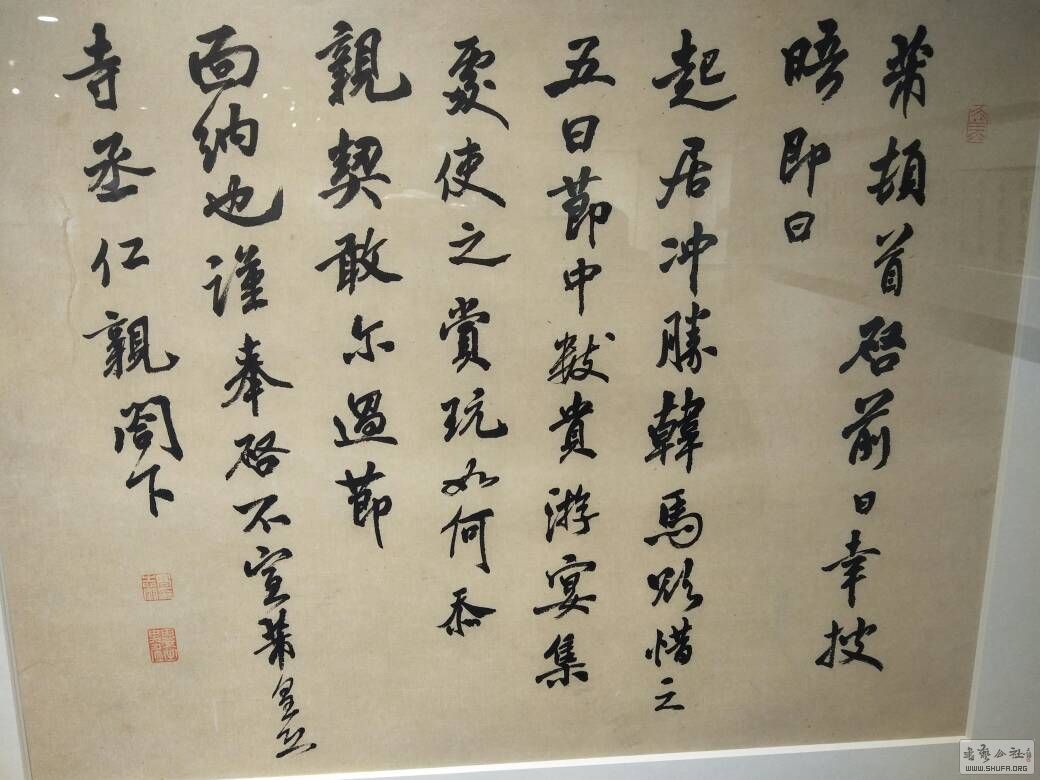 芾頓首啓前日幸披
晤即日
起居冲勝韓馬欲借之
五日節中數貴游宴集
處使之賞玩如何忝
親契敢尔過節
面納也謹奉啓不宣芾皇恐
寺丞仁親閤下
書藝公社
WWW.SHUFA.ORG